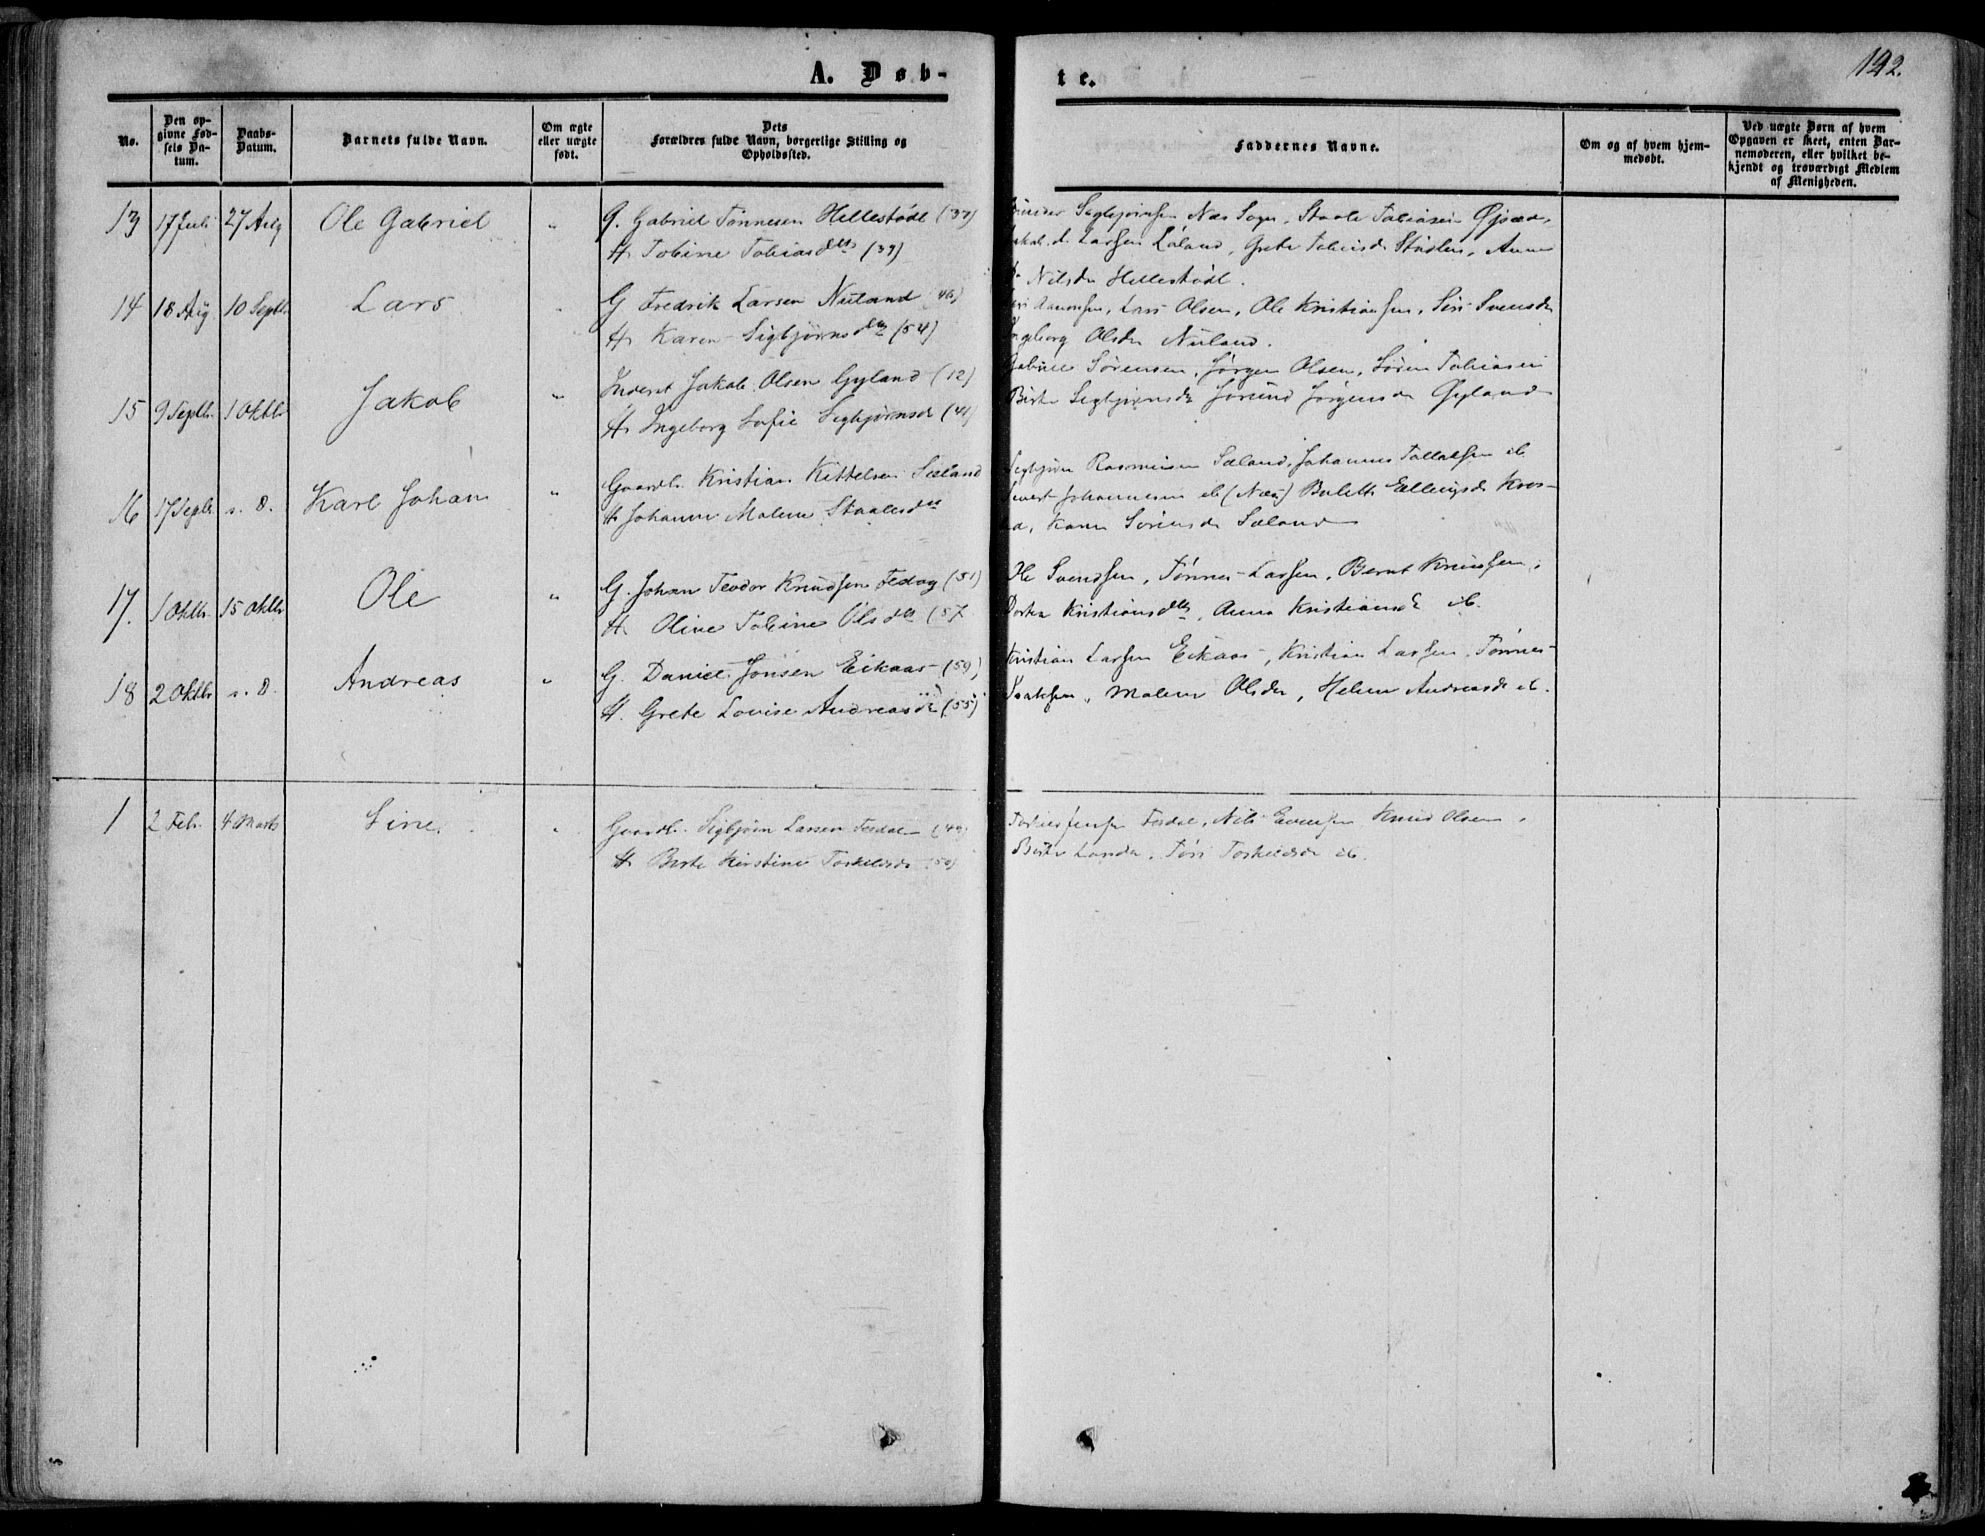 A. Døb-
te.
192.
No.
Den op-
givne Fød-
sels Da-
tum.
Daabs-
Datum.
Barnets fulde Navn.
Om ægte
eller uægte
født.
Dets
Forældres fulde Navn, borgerlige Stilling og
Opholdssted.
Faddernes Navne.
Om og af hvem hjem-
medøbt.
Ved uægte Børn af hvem
Opgaven er skeet, enten Bar-
nemoderen, eller hvilket be-
kjendt og troværdigt Medlem
af Menigheden.
13 17 Juli 27 Aug Ole Gabriel " G. Gabriel Tønnesen Hellestødl (37)
H Tobine Tobiasdtr (39)
Sigbjørnsen Næs Sogn, Staale Tobiasen
Larsen Løland, Grete Stødlen, Anne
Nilsdr Hellestødl.
14 18 Aug 10 Septbr Lars " G Fredrik Larsen Nuland (46)
H Karen Sigbjørnsdtr (54)
Lars Olsen, Ole Kristiansen, Siri Svensdr
Ingeborg Olsdr Nuland.
15 9 Septbr. 1 Oktbr Jakob " Inderst Jakob Olsen Gyland (12)
H Ingeborg Sofie Sigbjørnsdr (41)
Gabriel Sørensen, Jørgen Olsen, Søren Tobiasen
Birte Sigbjørnsdr Jorund Jørgensdr Gyland
16 17 Septbr s. D. Karl Johan " Gaardb. Kristian Kittelsen Sæland
H Johanne Malene Staalesdtr
Sigbjørn Rasmusen Sæland, Johannes Tallaksen ib
Sivert Johannesen ib (Næs) Bolette Ellingsdr
Karen Sørensdr Sæland
17. 1 Oktbr. 15 Oktbr Ole " G. Johan Teodor Knudsen Fedog (51)
H. Olive Tobine Olsdtr (57
Ole Svendsen, Tønnes Larsen, Bernt Knudsen,
Dorte Kristiansdtr, Anna Kristiansdr ib.
18 2 Oktbr s. D. Andreas " G. Daniel Jonsen Eikaas (59)
H. Grete Lovise Andreasdr (55)
Kristian Larsen Eikaas, Kristian Larsen, Tønnes
Isaksen, Malene Olsdr, Helene Andreasdr ib.
1 2 Febr. 4 Marts Sine " Gaardb. Sigbjørn Larsen Fesdal (49)
H Berte Kirstine Torkelsdr (50)
Fesdal, Nils Evensen Knud Olsen,
Berte Torkelsdr ib.